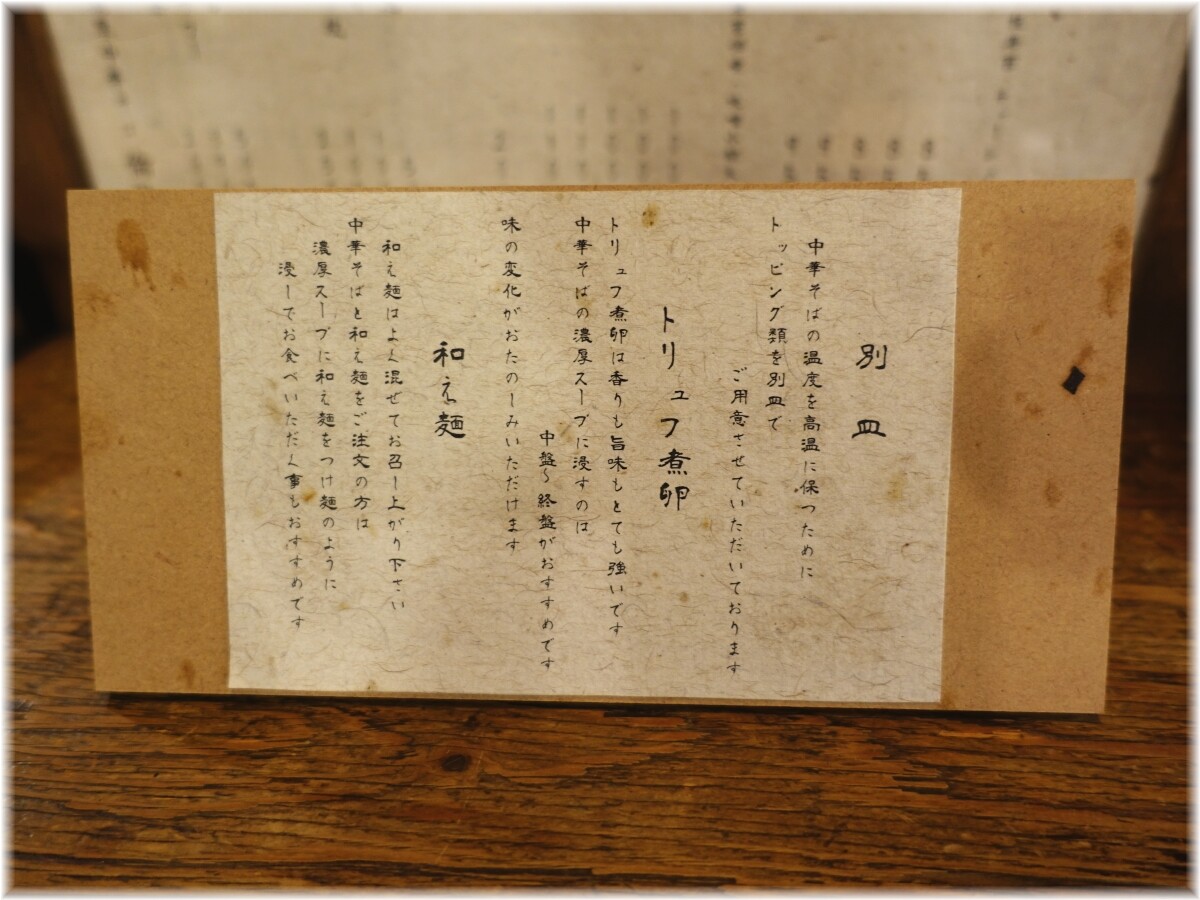 別皿
中華そばの温度を高温に保つために
トッピング類を別皿で
ご用意させていただいております
トリュフ煮卵
トリュフ煮卵は香りも旨味もとても強いです
中華そばの濃厚スープに浸すのは
中盤～終盤がおすすめです
味の変化がおたのしみいただけます
和え麺
和え麺はよく混ぜてお召し上がり下さい
中華そばと和え麺をご注文の方は
濃厚スープに和え麺をつけ麺のように
浸してお食べいただく事もおすすめです